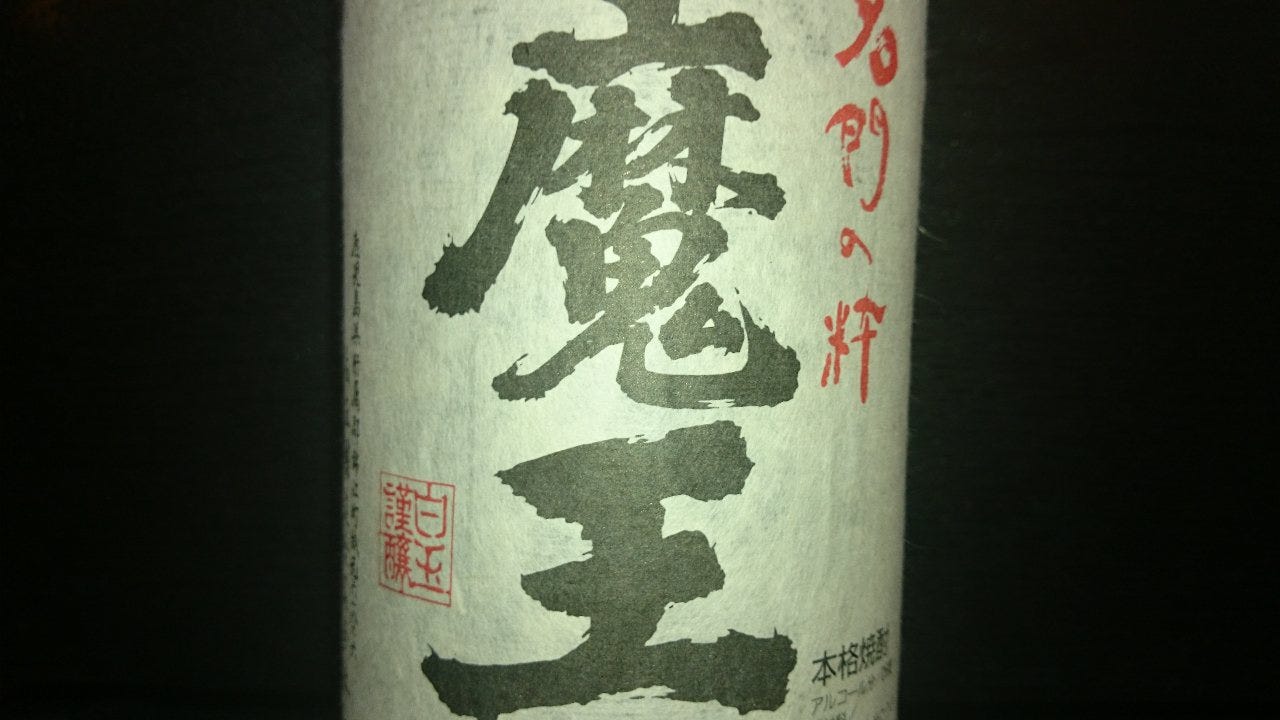 名門の粋
魔王
白玉
謹醸
本格焼酎
アルコール分